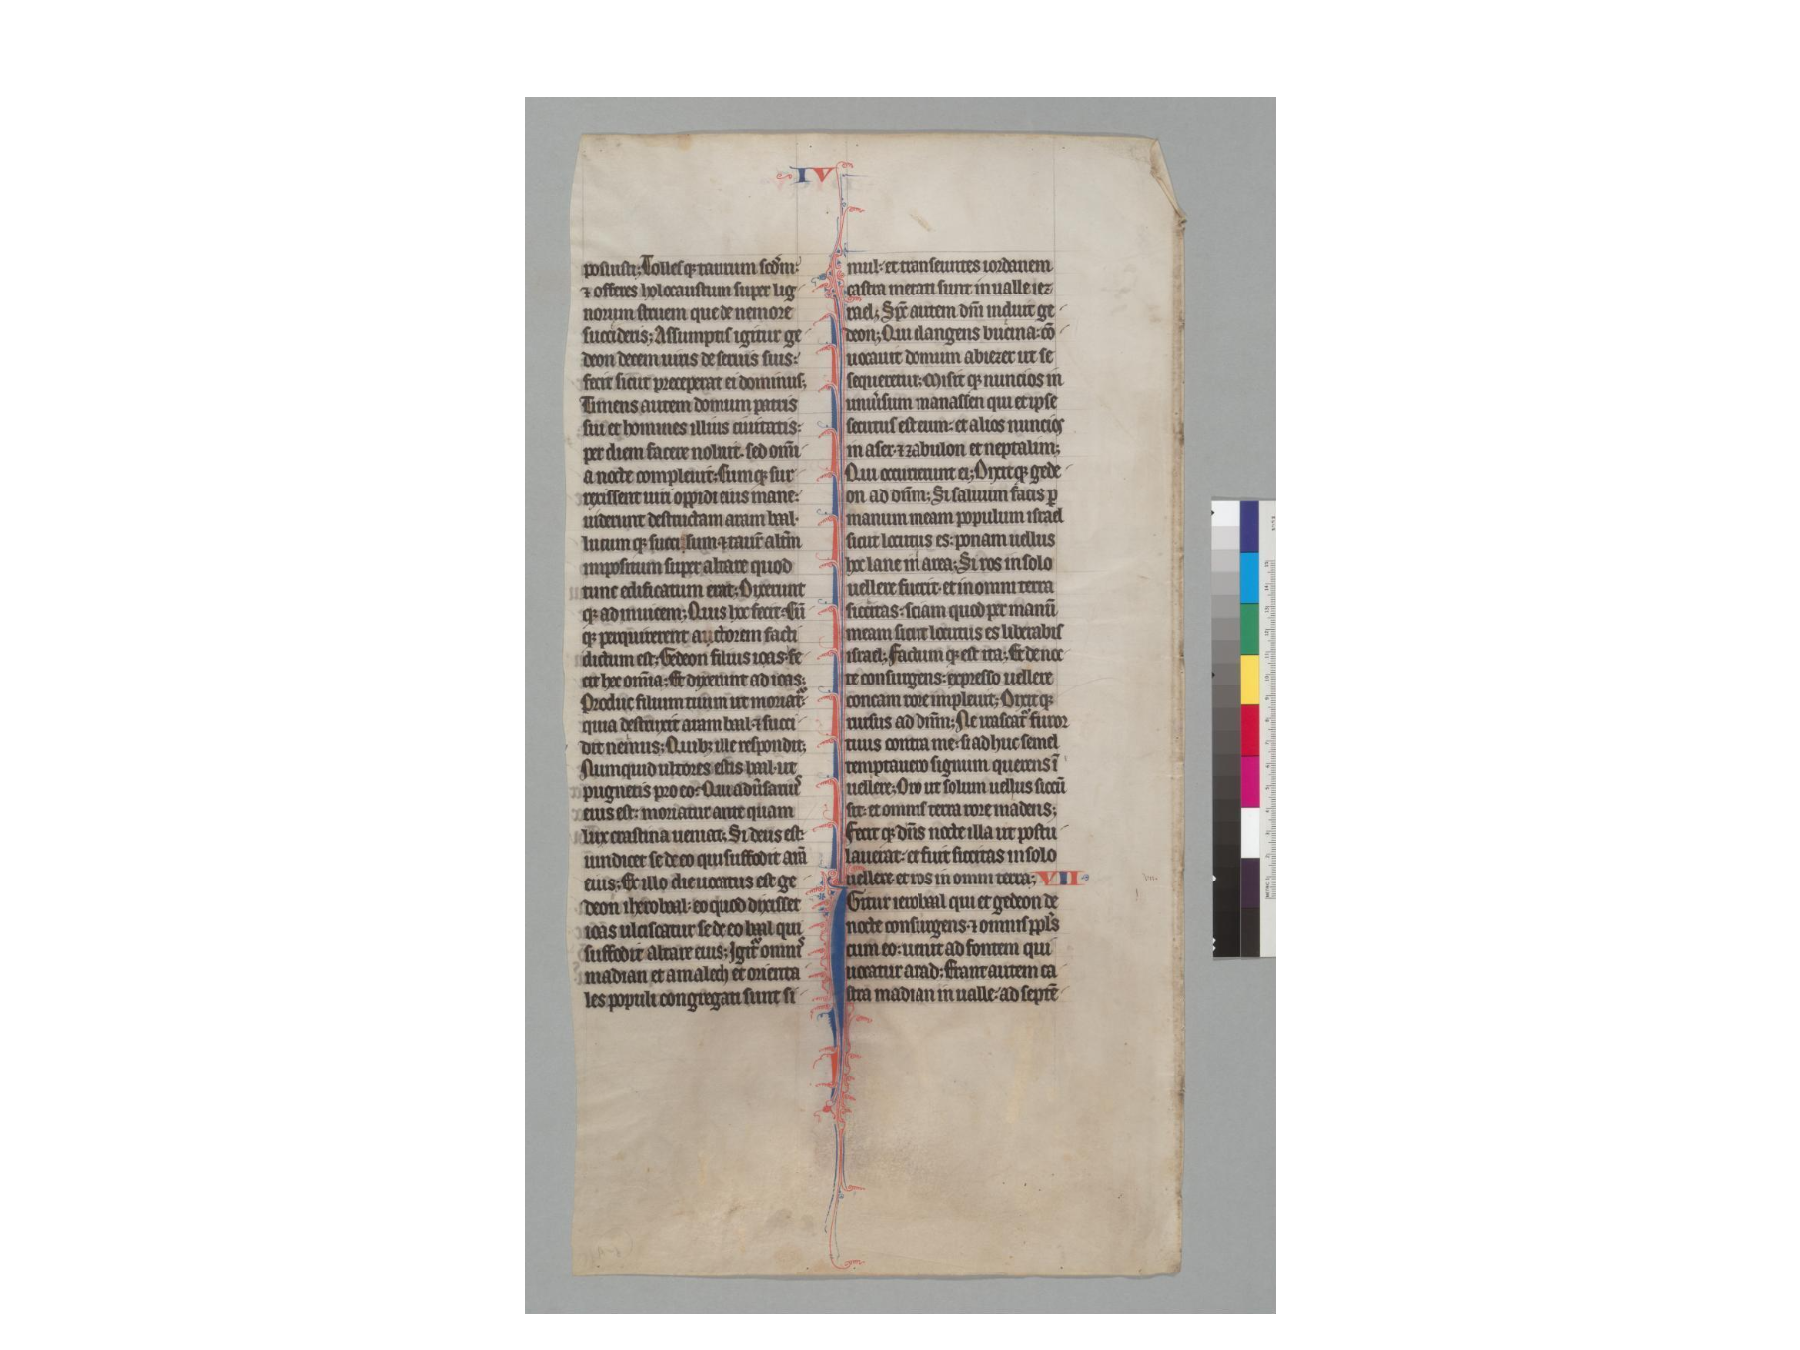 IV
posuisti; Tollesq; taurum scd̄m:
⁊ offeres holocaustum super lig
norum struem que de nemore
succideris; Assumptis igitur ge
deon decem uiris de seruis suis:
fecit sicut preceperat ei dominus;
Timens autem domum patris
sui et homines illius ciuitatis:
per diem facere noluit. sed om̄i
a nocte compleuit; Cumq; sur
rexissent uiri oppidi eius mane:
uiderunt destructam aram baal.
lucum q; succisum ⁊ taur̄ alt̄m
impositum super altare quod
tunc edificatum erat; Dixerunt
q; ad inuicem; Quis hec fecit; Cū
q; perquirerent auctorem facti
dictum est; Gedeon filius ioas fe
cit hec om̄ia; Et dixerunt ad ioas;
Produc filium tuum ut moriat᷑
quia destruxit aram baal. ⁊ succi
dit nemus; Quib; ille respondit;
Numquid ultores estis baal. ut
pugnetis pro eo; Qui adūsariꝰ
eius est: moriatur ante quam
lux crastina ueniat; Si deus est:
uindicet se de eo qui suffodit arā
eius; Ex illo die uocatus est ge
deon iherobaal: eo quod dixisset
ioas ulciscatur se de eo baal qui
suffodit altare eius; Igit᷑ omnis
madian et amalech et orienta
les populi congregati sunt si
mul: et transeuntes iordanem
castra metati sunt in ualle iez
rael; Sp̄c autem dn̄i induit ge
deon; Qui clangens bucina: cō
uocauit domum abiezer ut se
sequeretur; Misit q; nuncios in
uniūsum manassen qui et ipse
secutus est eum: et alios nuncios
in aser. ⁊ zabulon et neptalim;
Qui occurrerunt ei; Dixit q; gede
on ad dn̄m; Si saluum facis ꝑ
manum meam populum israel
sicut locutus es: ponam uellus
hoc lane in area; Si ros in solo
uellere fuerit. et in omni terra
siccitas: sciam quod per manū
meam sicut locutus es liberabis
israel; Factum q; est ita; Et de noc
te consurgens: expresso uellere
concam rore impleuit; Dixit q;
rursus ad dn̄m; Ne irascat᷑ furor
tuus contra me. si ad huc semel
temptauero signum querens ī
uellere; Oro ut solum uellus siccū
sit: et omnis terra rore madens;
Fecit q; dn̄s nocte illa ut postu
lauerat: et fuit siccitas in solo
uellere et ros in omni terra; VII
Igitur ierobaal qui et gedeon de
nocte consurgens. ⁊ omnis ppl̄s
cum eo: uenit ad fontem qui
uocatur arad; Erant autem ca
stra madian in ualle: ad septē